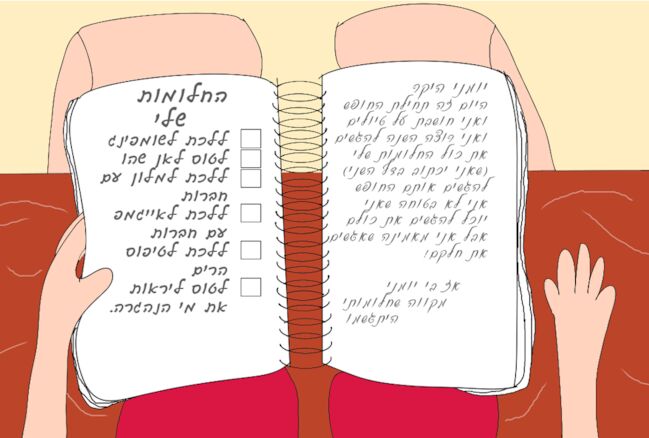 יומני היקר
היום זה תחילת החופש
ואני חושבת על טיולים
ואני רוצה השנה להגשים
את כול החלומות שלי
(שאני יכתוב בדף השני)
להגשים אותם החופש
אני לא בטוחה שאני
יוכל להגשים את כולם
אבל אני מאמינה שאגשים
את חלקם!
אז בי יומני
מקווה שחלומותי
היתגשמו
החלומות
שלי
ללכת לשומפינג
לטוס לאן שהו
ללכת למלון עם
חברות
ללכת לאייגמפ
עם חברות
ללכת לטיפוס
הרים
לטוס ליראות
את מי הנהגרה.